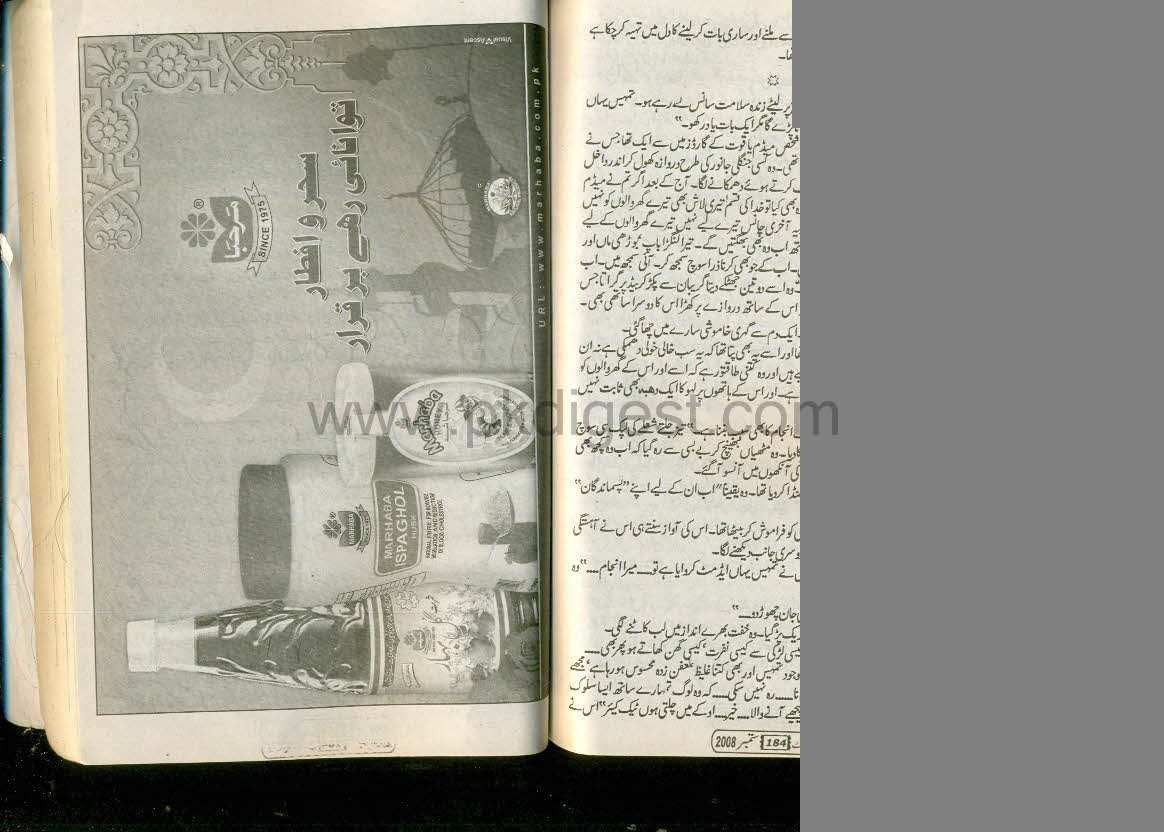 سے ملنے اور ساری بات کر لینے کا دل میں تہیہ کر چکا ہے
تھا۔
پر لیٹے زندہ سلامت سانس لے رہے ہو۔ تمہیں یہاں
گا مگر ایک بات یاد رکھو۔"
شخص میڈم یاقوت کے گارڈز میں سے ایک تھا جس نے
تھی۔ وہ کسی جنگلی جانور کی طرح دروازہ کھول کر اندر داخل
کرتے ہوئے دھمکانے لگا۔ آج کے بعد اگر تم نے میڈم
بھی کیا تو خدا کی قسم تیری لاش بھی تیرے گھر والوں کو نہیں
یہ آخری چانس تیرے لیے نہیں تیرے گھر والوں کے لیے
اب وہ بھی بھگتیں گے۔ تیرا لنگڑا باپ بوڑھی ماں اور
اب کے جو بھی کرنا ذرا سوچ سمجھ کر۔ آئی سمجھ میں۔ اب
وہ اسے دو تین جھٹکے دیتا گریبان سے پکڑ کر بیڈ پر گراتا جس
اس کے ساتھ دروازے پر کھڑا اس کا دوسرا ساتھی بھی۔
ایک دم سے گہری خاموشی سارے میں چھا گئی۔
اور اسے یہ بھی پتا تھا کہ یہ سب خالی خولی دھمکی ہے نہ ان
ہیں اور وہ کتنی طاقتور ہے کہ اسے اور اس کے گھر والوں کو
ہے۔ اور اس کے ہاتھوں پر لہو کا ایک دھبہ بھی ثابت نہیں
انجام کا بھی سبب بننا ہے۔" تیز جلتے شعلے کی لپک سی سوچ
دیا۔ وہ مٹھیاں بھینچ کر بے بسی سے رہ گیا کہ اب وہ کچھ بھی
کی آنکھوں میں آنسو آ گئے۔
کر دیا تھا۔ وہ یقیناً" اب ان کے لیے اپنے "پسماندگان"
کو فراموش کر بیٹھا تھا۔ اس کی آواز سنتے ہی اس نے آہستگی
دوسری جانب دیکھنے لگا۔
نے تمہیں یہاں ایڈمٹ کروایا ہے تو.... میرا انجام...." وہ
جان چھوڑ دو...."
پڑ گیا۔ وہ خفت بھرے انداز میں لب کاٹنے لگی۔
لڑکی سے کیسی نفرت، کیسی گھن کھاتے ہو پھر بھی....
وجود تمہیں اور بھی کتنا غلیظ، تعفن زدہ محسوس ہو رہا ہے، مجھے
نا..... رہ نہیں سکی..... کہ وہ لوگ تمہارے ساتھ ایسا سلوک
آنے والا.... خیر.... اوکے میں چلتی ہوں ٹیک کیئر" اس نے
184 ستمبر 2008
Visual Ascent
URL: www.marhaba.com.pk
سحر و افطار
توانائی رہے برقرار
مرحبا
®
SINCE 1975
Marhaba
HONEY
MARHABA
ISPAGHOL
HUSK
www.pkdigest.com